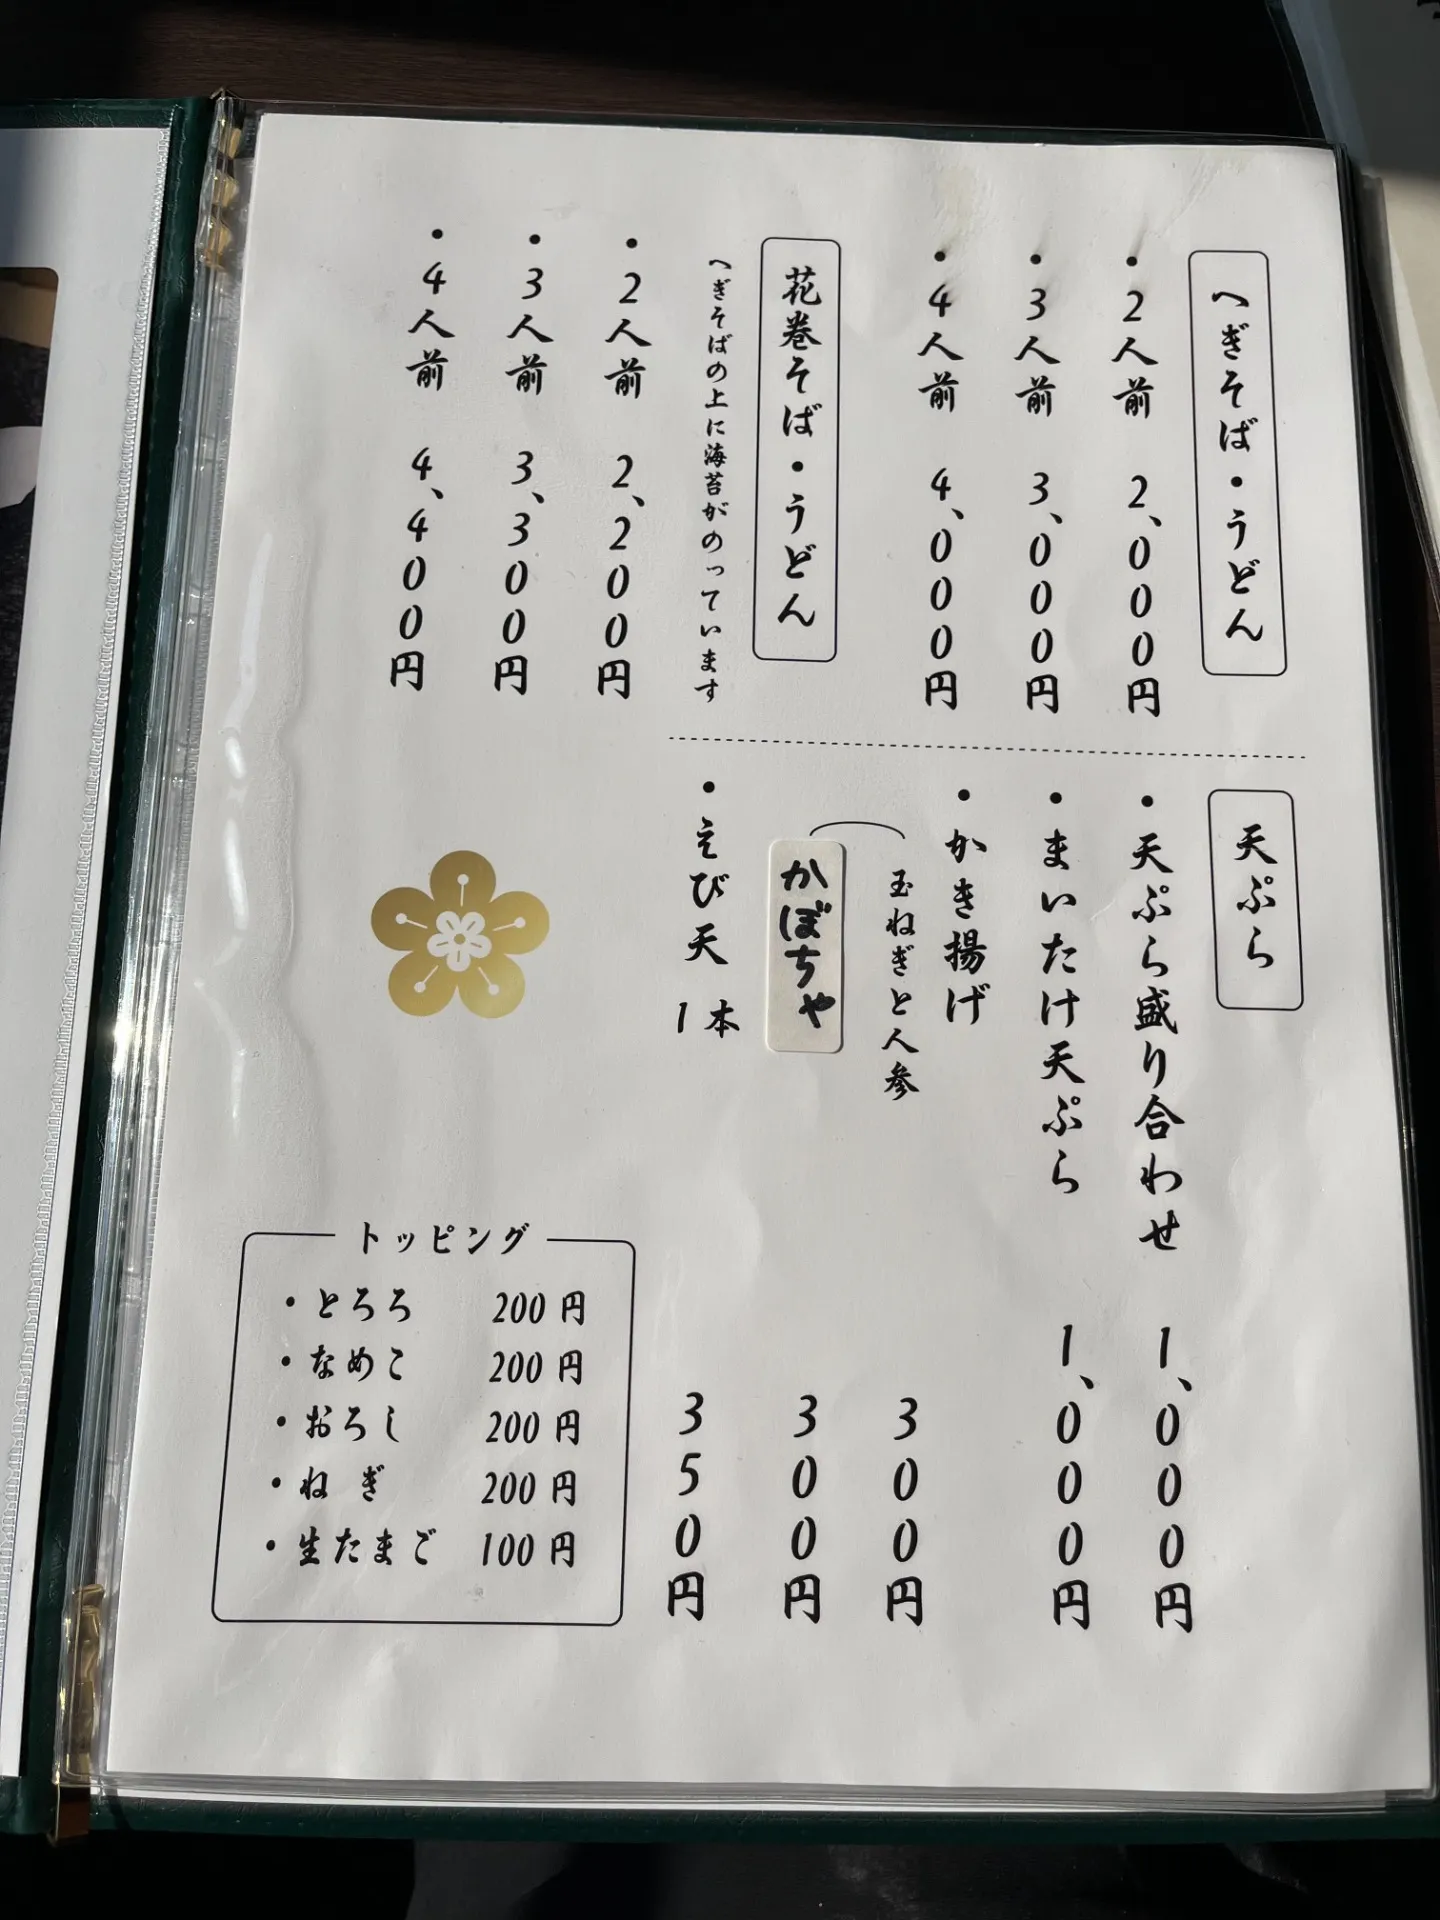 へぎそば・うどん
・2人前 2、000円
・3人前 3、000円
・4人前 4、000円
花巻そば・うどん
へぎそばの上に海苔がのっています
・2人前 2、200円
・3人前 3、300円
・4人前 4、400円
天ぷら
・天ぷら盛り合わせ 1、000円
・まいたけ天ぷら 1、000円
・かき揚げ
玉ねぎと人参 300円
かぼちゃ 300円
・えび天 1本 350円
トッピング
・とろろ 200円
・なめこ 200円
・おろし 200円
・ねぎ 200円
・生たまご 100円